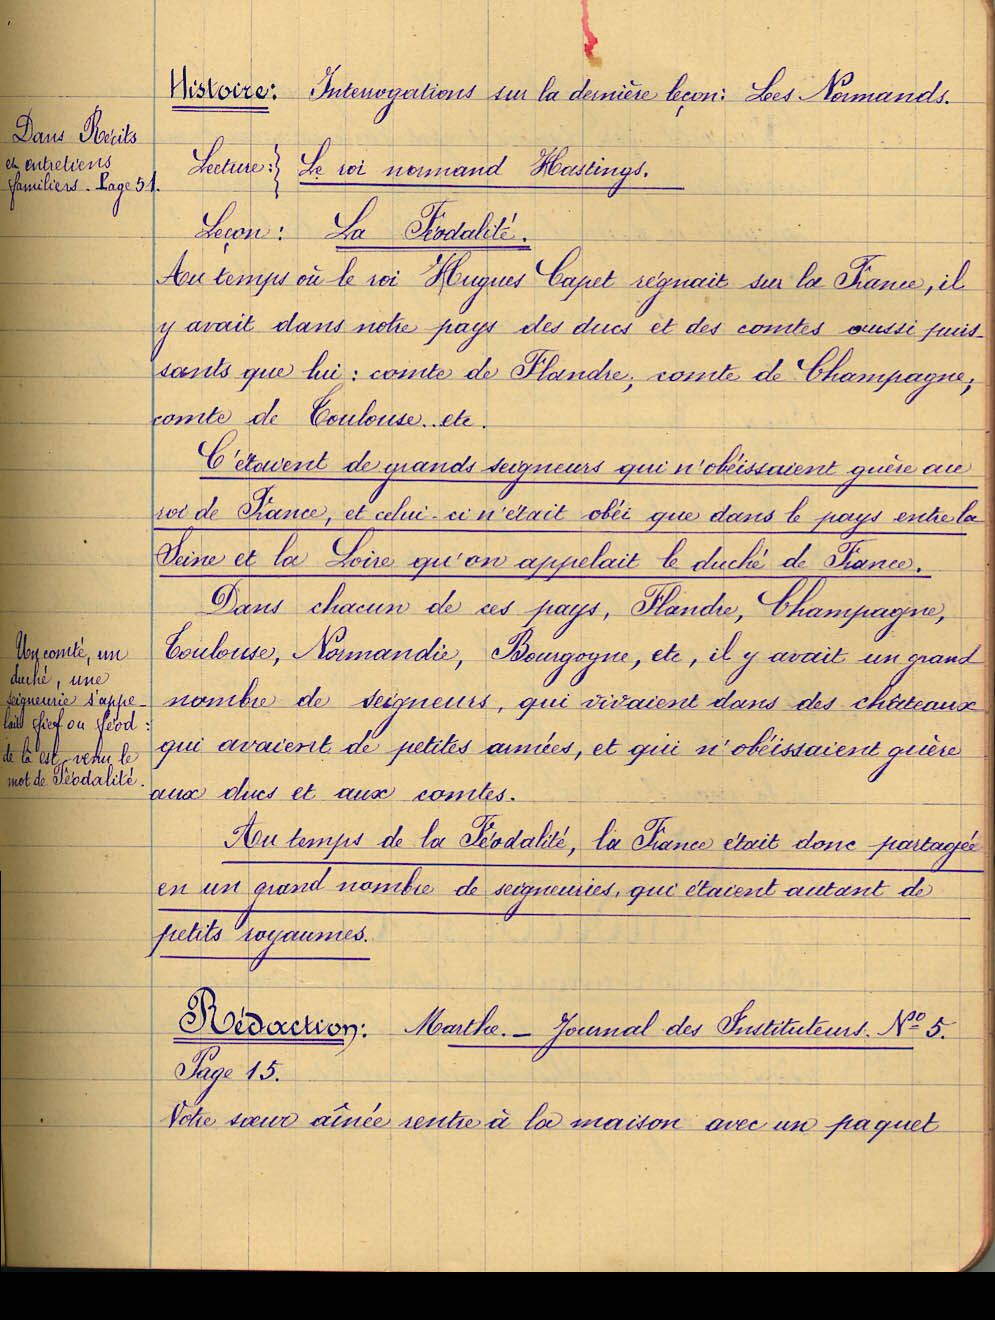 Histoire: Interrogations sur la dernière leçon: Les Normands.
Dans Récits
et entretiens
familiers. Page 51.
Lecture:} Le roi normand Hastings.
Leçon: La Féodalité.
Au temps où le roi Hugues Capet régnait sur la France, il
y avait dans notre pays des ducs et des comtes aussi puis-
sants que lui: comte de Flandre; comte de Champagne;
comte de Toulouse.. etc.
C'étaient de grands seigneurs qui n'obéissaient guère au
roi de France, et celui-ci n'était obéi que dans le pays entre la
Seine et la Loire qu'on appelait le duché de France.
Dans chacun de ces pays, Flandre, Champagne,
Toulouse, Normandie, Bourgogne, etc, il y avait un grand
nombre de seigneurs, qui vivaient dans des châteaux
qui avaient de petites armées, et qui n'obéissaient guère
aux ducs et aux comtes.
Un comté, un
duché, une
seigneurie s'appe-
lait fief ou féod:
de là est venu le
mot de Féodalité.
Au temps de la Féodalité, la France était donc partagée
en un grand nombre de seigneuries, qui étaient autant de
petits royaumes.
Rédaction: Marthe. _ Journal des Instituteurs. Nº 5.
Page 15.
Votre sœur aînée rentre à la maison avec un paquet